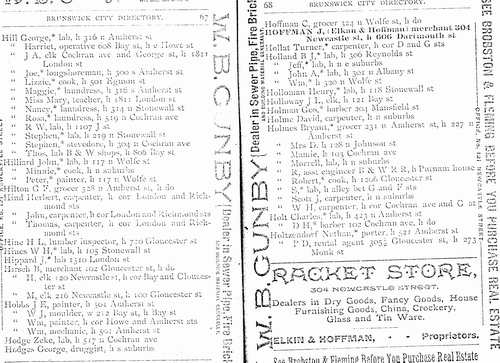 BRUNSWICK CITY DIRECTORY. 67
Hill George,* lab, h 316 n Amherst st
" Harriet, operative 608 Bay st, h e Howe st
" J A, clk Cochran ave and George st, h 1821
London st
" Joe,* longshoreman, h 300 s Amherst st
" Lizzie,* cook, h 501 Egmon st
" Maggie,* laundress, h 316 s Amherst st
" Miss Mary, teacher, h 1821 London st
" Nancy,* laundress, h 314 n Stonewall st
" Rosa,* laundress, h 519 n Cochran ave
" R W, lab, h 1107 J st
" Stephen,* lab, h 219 n Stonewall st
" Stephen,* stevedore, h 503 n Cochran ave
" Thos, lab B & W shops, h 806 Bay st
Hilliard John,* lab, h 117 n Wolfe st
" Minnie,* cook, h n suburbs
" Peter,* painter, h 117 n Wolfe st
Hilton G F, grocer 328 n Amherst st, h do
Hind Herbert, carpenter, h cor London and Rich-
mond sts
" John, carpenter, h cor London and Richmond sts
" Thomas, carpenter, h cor London and Rich-
mond sts
Hine H L, lumber inspector, h 710 Gloucester st
Hines W H,* lab, h 105 Stonewall st
Hippard J,* lab 1510 London st
Hirsch B, merchant 102 Gloucester st, h do
" H, clk 120 Newcastle st, h cor Bay and Glouces-
ter st
" M, clk 216 Newcastle st, h 100 Gloucester st
Hobbs J E, painter, h 301 Amherst st
" W J, moulder, w 212 Bay st, h Bay st
" Wm, painter, h cor Howe and Amherst sts
" Wm, mechanic, h 501 Amherst st
Hodge Zeke, lab, h 517 n Cochran ave
Hodges George, druggist, h s suburbs
W. B. GUNBY
Dealer in Sewer Pipe, Fire Brick
68 BRUNSWICK CITY DIRECTORY.
Hoffman C, grocer 324 n Wolfe st, h do
HOFFMAN J, (Elkan & Hoffman) merchant 304
Newcastle st, h 606 Dartmouth st
Hollat Turner,* carpenter, h cor D and G sts
Holland B J,* lab, h 306 Reynolds st
" Jeff,* lab, h n e suburbs
" John A,* lab, h 301 n Albany st
" Wm,* h 500 n Wolfe st
Holloman Henry,* lab, h 118 Stonewall st
Holloway J L, clk, h 121 Bay st
Holman Geo,* barber 203 Mansfield st
Holme David, carpenter, h n suburbs
Holmes Bryant,* grocer 231 n Amherst st, h 227 n
Amherst st
" Mrs D, h 128 n Johnson st
" Mamie, h 103 Cochran ave
" Morrell, lab, h n suburbs
" R, asst engineer B & W R R, h Putnam house
" Robert,* cook, h 1206 Gloucester st
" S,* lab, h alley bet G and F sts
" Scott J, carpenter, h n suburbs
" W H, carpenter, h cor Cochran ave and G st
Holt Charles,* lab, h 423 n Amherst st
" D H,* barber 102 Cochran ave, h do
Holtzendorf Nathan,* porter, h 521 Amherst st
" P D, rental agent 305½ Gloucester st, h 273
Monk st
RACKET STORE,
304 NEWCASTLE STREET.
Dealers in Dry Goods, Fancy Goods, House
Furnishing Goods, China, Crockery,
Glass and Tin Ware.
ELKIN & HOFFMAN, - - Proprietors.
See Brobston & Fleming Before You Purchase Real Estate
W. B. GUNBY
Dealer in Sewer Pipe, Fire Brick
SEE BROBSTON & FLEMING BEFORE YOU PURCHASE REAL ESTATE